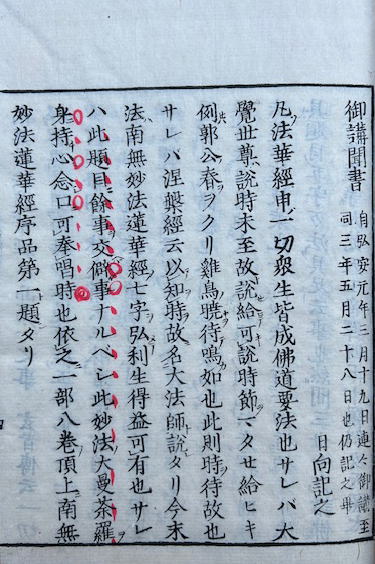 御講聞書 自弘安元年三月十九日連々御講至
同三年五月二十八日也仍記之畢
日向記之
凡法華經申一切衆生皆成佛道要法也サレバ大
覺世尊說時未至故說給可說時節ヽタセ給ヒキ
例郭公春ヲクリ雞鳥曉待鳴如也此則時待故也
サレバ涅槃經云以知時故名大法師說タリ今末
法南無妙法蓮華經七字弘利生得益可有也サレ
ハ此題目餘事交僻事ナルベシ此妙法大曼荼羅
身持心念口可奉唱時也依之一部八卷頂上南無
妙法蓮華經序品第一題タリ